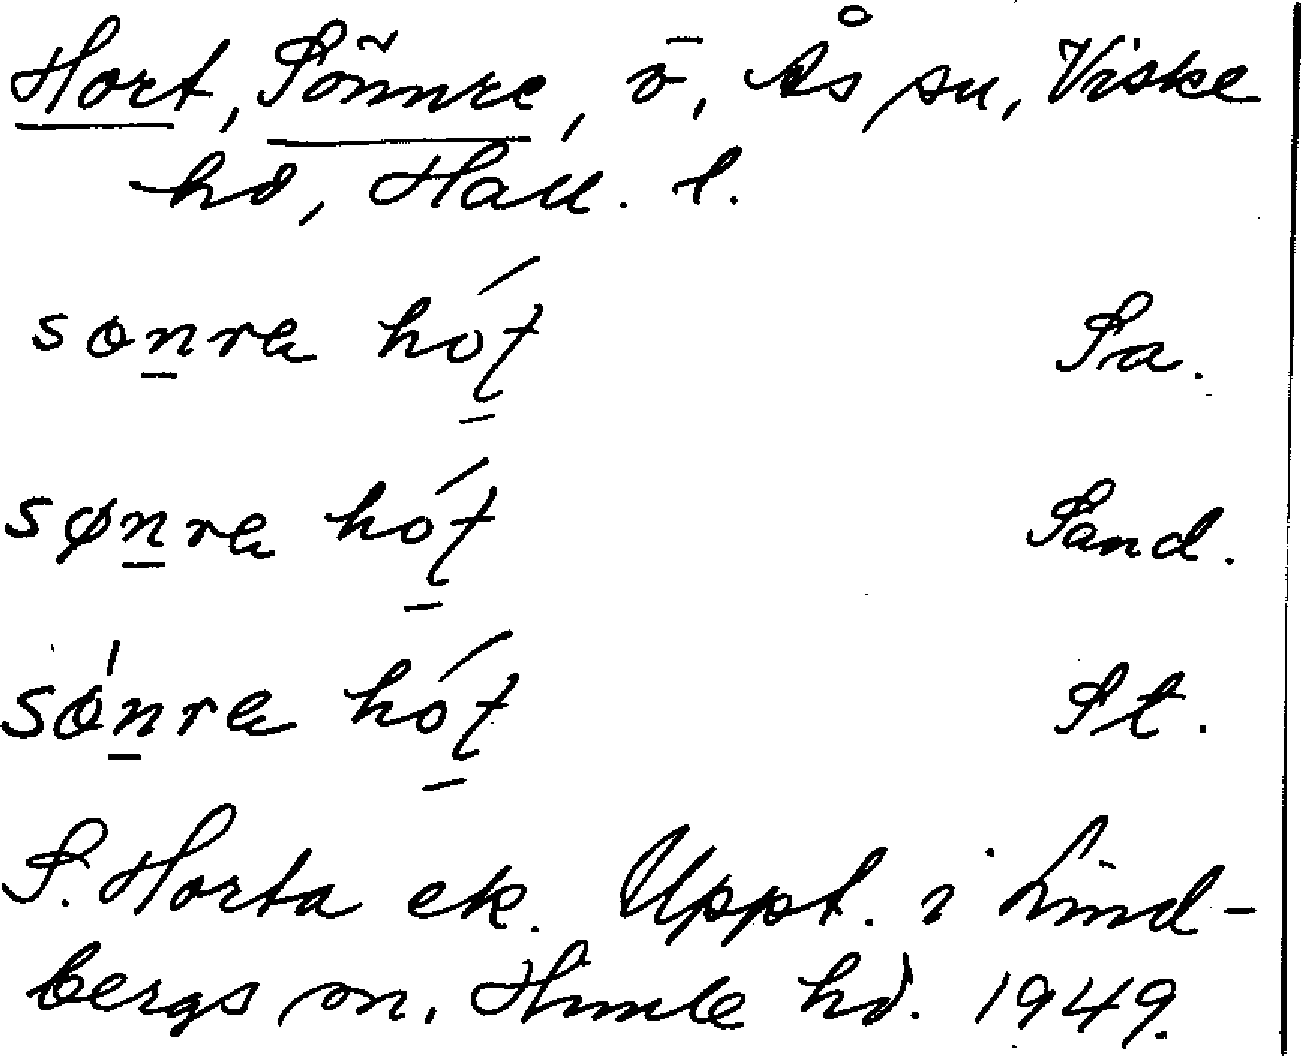 Hort, Sönnre, ö, Ås sn, Viske
hd, Hall. l.
sonra hót Sa.
sønra hót Sand.
sónra hót St.
S. Horta ek. Uppt. i Lind-
bergs sn. Himle hd. 1949.